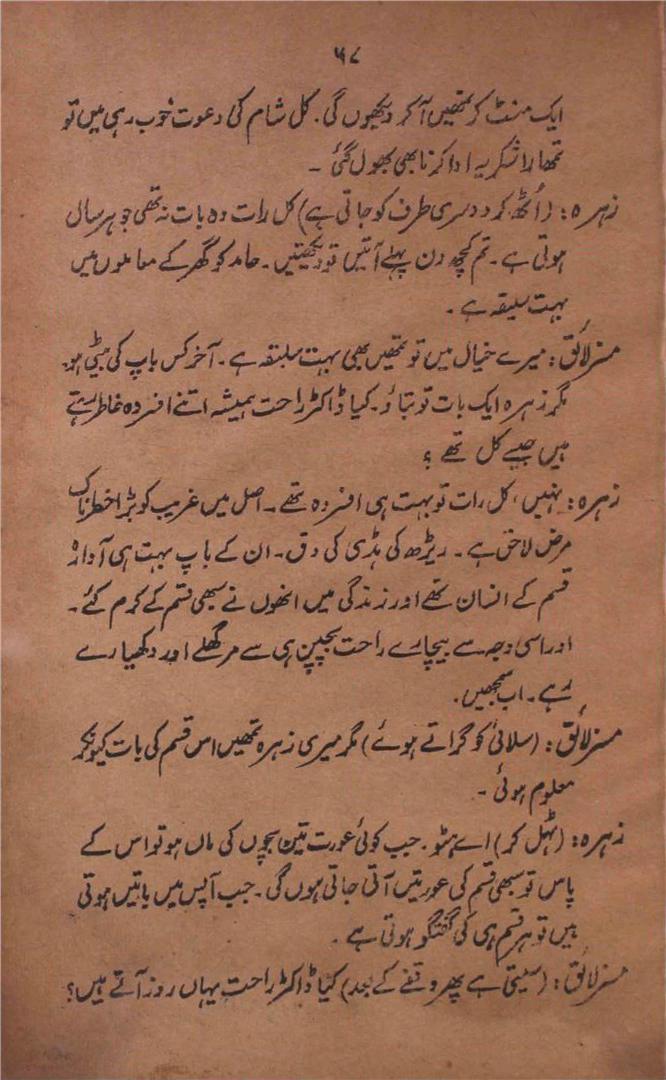 ۵۷
ایک منٹ کر تمھیں آ کر دیکھوں گی. کل شام کی دعوت خوب رہی میں تو
تمھارا شکریہ ادا کرنا بھی بھول گئی ۔
زہرہ: (اُٹھ کر دوسری طرف کو جاتی ہے) کل رات وہ بات نہ تھی جو ہر سال
ہوتی ہے۔ تم کچھ دن پہلے آتیں تو دیکھتیں۔ حامد کو گھر کے معاملوں میں
بہت سلیقہ ہے ۔
مسز لائق: میرے خیال میں تو تمھیں بھی بہت سلیقہ ہے۔ آخر کس باپ کی بیٹی ہو
مگر زہرہ ایک بات تو بتاؤ۔ کیا ڈاکٹر راحت ہمیشہ اتنے افسردہ خاطر رہتے
ہیں جیسے کل تھے؟
زہرہ: نہیں، کل رات تو بہت ہی افسردہ تھے ۔ اصل میں غریب کو بڑا خطرناک
مرض لاحق ہے۔ ریڑھ کی ہڈی کی دق۔ ان کے باپ بہت ہی آوارہ
قسم کے انسان تھے اور زندگی میں انھوں نے سبھی قسم کے کرم کئے۔
اور اسی وجہ سے بیچارے راحت بچپن ہی سے مرگھلے اور دکھیارے
رہے۔ اب سمجھیں.
مسز لائق: (سلائی کو گراتے ہوئے) مگر میری زہرہ تمھیں اس قسم کی بات کیونکر
معلوم ہوئی ۔
زہرہ: (ٹہل کر) اے ہٹو. جب کوئی عورت تین بچوں کی ماں ہو تو اس کے
پاس تو سبھی قسم کی عورتیں آتی جاتی ہوں گی۔ جب آپس میں باتیں ہوتی
ہیں تو ہر قسم ہی کی گفتگو ہوتی ہے ۔
مسز لائق: (سیتی ہے پھر وقفے کے بعد) کیا ڈاکٹر راحت یہاں روز آتے ہیں؟